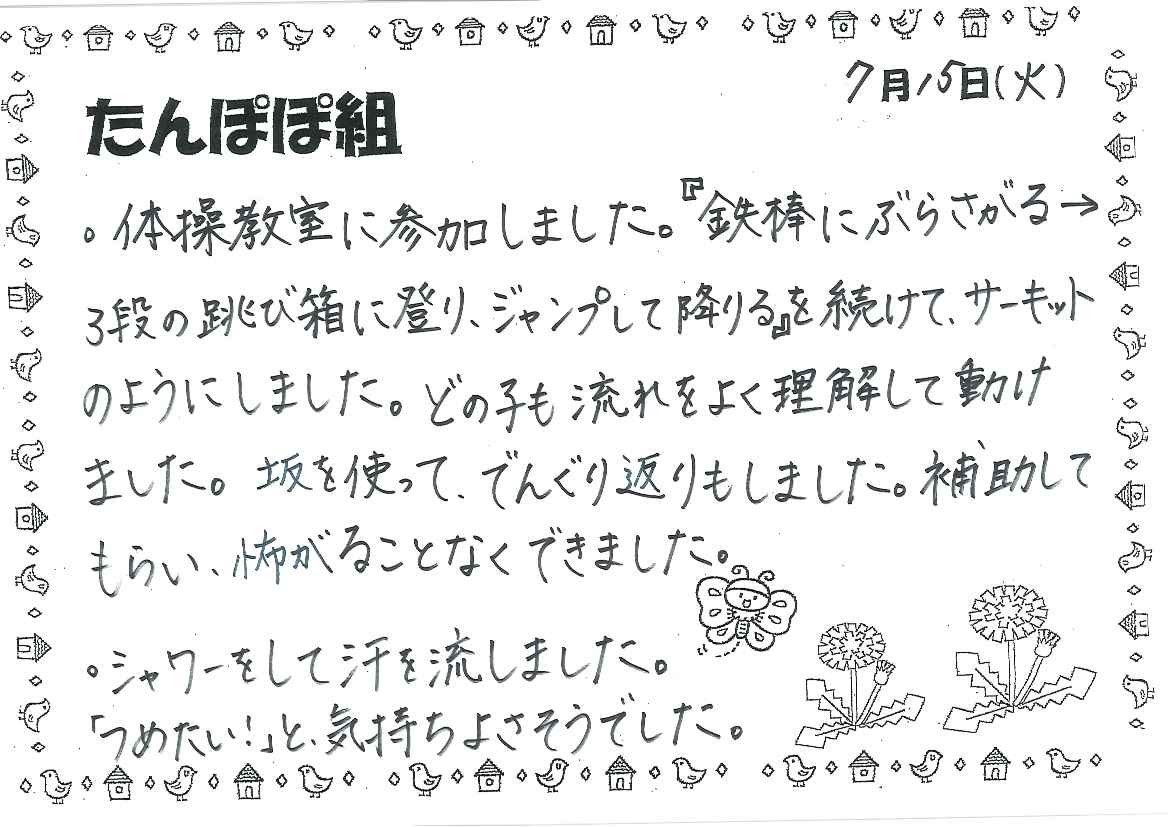 7月15日(火)
たんぽぽ組
。体操教室に参加しました。『鉄棒にぶらさがる→
3段の跳び箱に登り、ジャンプして降りる』を続けて、サーキット
のようにしました。どの子も流れをよく理解して動け
ました。坂を使って、でんぐり返りもしました。補助して
もらい、怖がることなくできました。
。シャワーをして汗を流しました。
「つめたい!」と、気持ちよさそうでした。